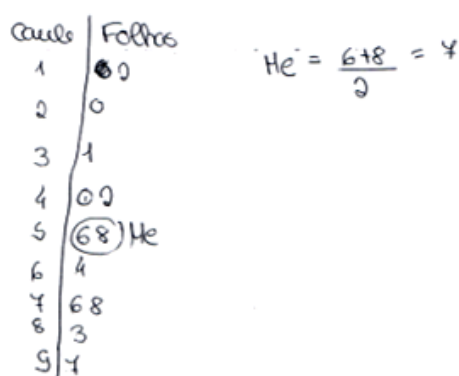 Caule | Folhas
1 | 2
2 | 0
3 | 1
4 | 02
5 | 68 Me
6 | 4
7 | 68
8 | 3
9 | 7
Me = 6+8 / 2 = 7